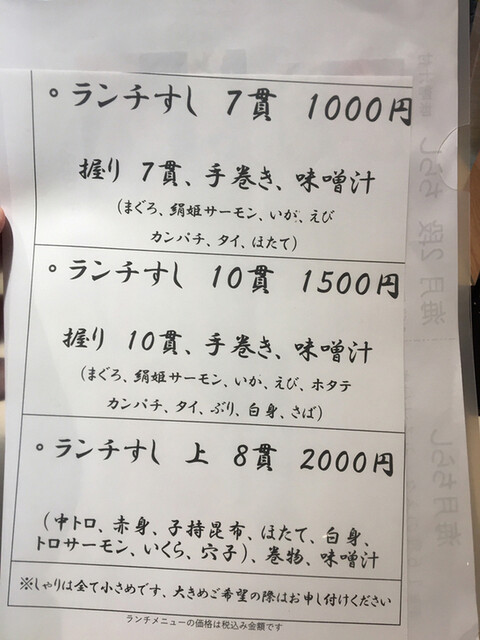 ○ ランチすし 7貫 1000円
握り 7貫、手巻き、味噌汁
(まぐろ、絹姫サーモン、いか、えび
カンパチ、タイ、ほたて)
○ ランチすし 10貫 1500円
握り 10貫、手巻き、味噌汁
(まぐろ、絹姫サーモン、いか、えび、ホタテ
カンパチ、タイ、ぶり、白身、さば)
○ ランチすし 上 8貫 2000円
(中トロ、赤身、子持昆布、ほたて、白身、
トロサーモン、いくら、穴子)、巻物、味噌汁
※しゃりは全て小さめです、大きめご希望の際はお申し付けください
ランチメニューの価格は税込み金額です